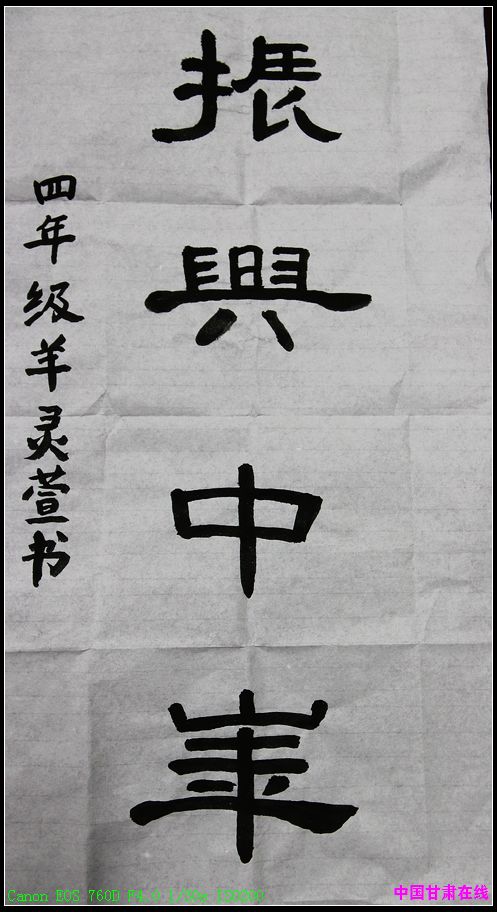 振興中華
四年级羊灵萱书
Canon EOS 760D F4.0 1/30s ISO200
中国甘肃在线